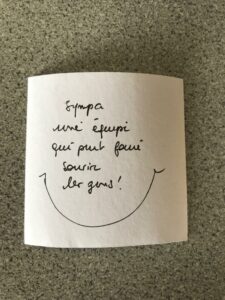 Sympa
une équipe
qui peut faire
sourire
les gens !